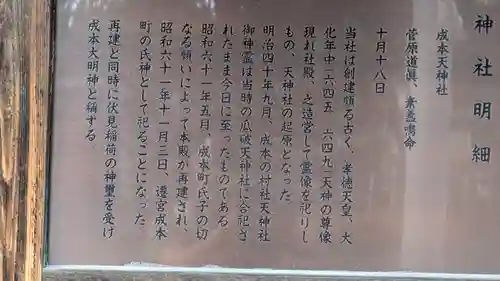 神社明細
成本天神社
菅原道眞、素盞鳴命
十月十八日
当社は創建頗る古く、孝徳天皇、大
化年中(六四五〜六四九)天神の尊像
現れ社殿、之造営して霊像を祀りし
もの、天神社の起原となった
明治四十年九月、成本の村社天神社
御神霊は当時の瓜破天神社に合祀さ
れたまま今日に至ったものである
昭和六十一年五月、成本町氏子の切
なる願いによって本殿が再建され、
昭和六十一年十一月三日、遷宮成本
町の氏神として祀ることになった
再建と同時に伏見稲荷の神璽を受け
成本大明神と稱する